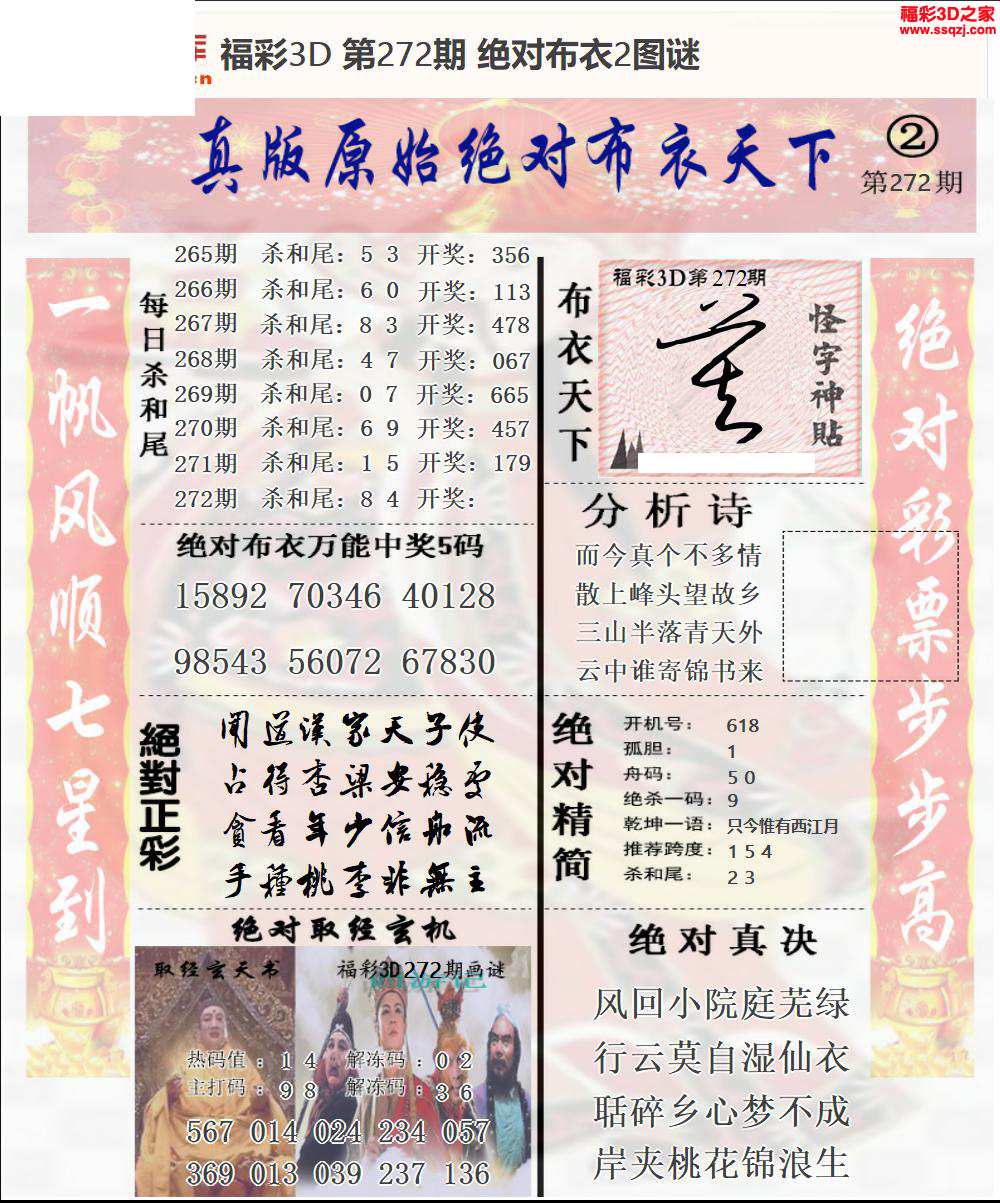 福彩3D之家
www.ssqzj.com
福彩3D 第272期 绝对布衣2图谜
真版原始绝对布衣天下
②
第272期
一帆风顺七星到
每日杀和尾
265期 杀和尾: 5 3 开奖: 356
266期 杀和尾: 6 0 开奖: 113
267期 杀和尾: 8 3 开奖: 478
268期 杀和尾: 4 7 开奖: 067
269期 杀和尾: 0 7 开奖: 665
270期 杀和尾: 6 9 开奖: 457
271期 杀和尾: 1 5 开奖: 179
272期 杀和尾: 8 4 开奖:
绝对布衣万能中奖5码
15892 70346 40128
98543 56072 67830
絕對正彩
闻道汉家天子使
占得杏梁安稳处
贪看年少信船流
手種桃李非無主
绝对取经玄机
取经玄天书
福彩3D272期画谜
热码值: 1 4 解冻码: 0 2
主打码: 9 8 解冻码: 3 6
567 014 024 234 057
369 013 039 237 136
布衣天下
福彩3D第272期
怪字神贴
分析诗
而今真个不多情
散上峰头望故乡
三山半落青天外
云中谁寄锦书来
绝对精简
开机号: 618
孤胆: 1
舟码: 5 0
绝杀一码: 9
乾坤一语: 只今惟有西江月
推荐跨度: 1 5 4
杀和尾: 2 3
绝对真决
风回小院庭芜绿
行云莫自湿仙衣
聒碎乡心梦不成
岸夹桃花锦浪生
绝对彩票步步高